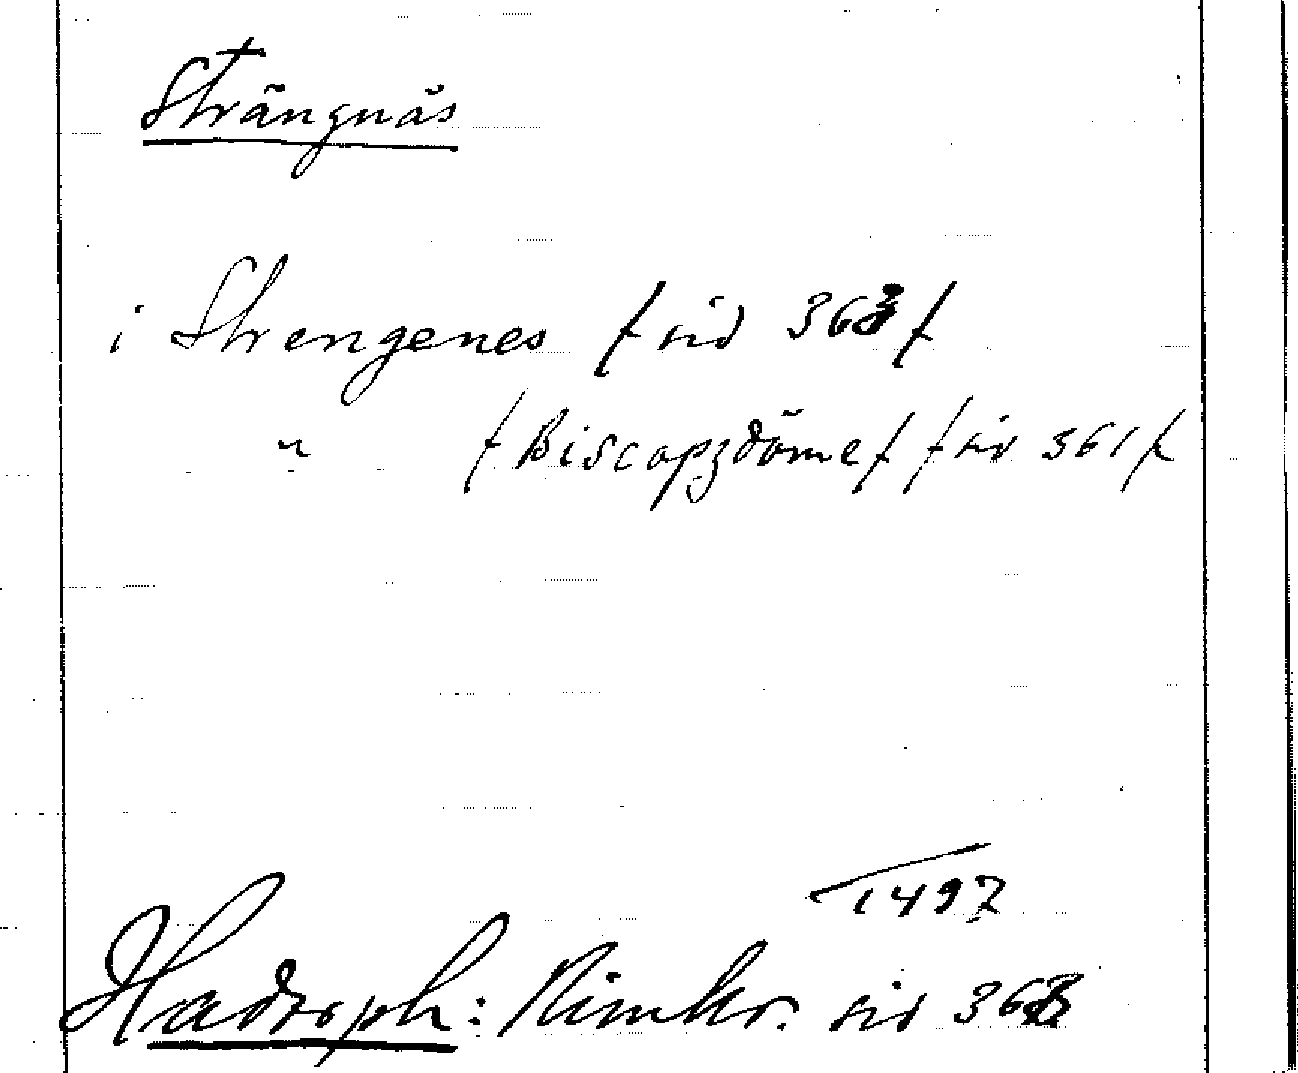 Strängnäs
i Strengenes /: sid 363 :/
" /: Biscopzdöme :/ /: sid 361 :/
1497
Hadorph: Rimkr. sid 363